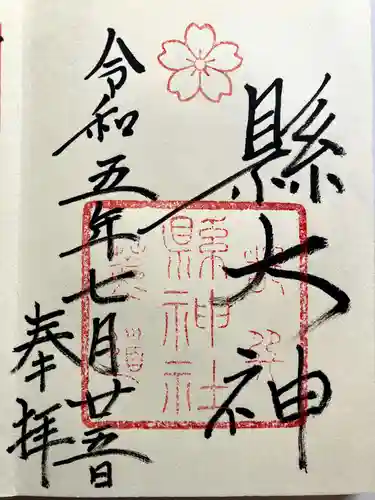 縣大神
令和五年七月廿五日
奉拝
縣神社